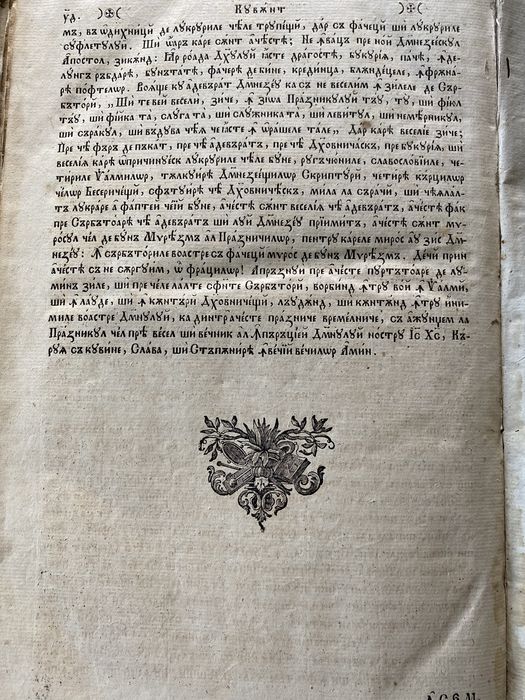 уд. )✠( Кꙋвѫнт )✠(
мъ, въ ѡдихниций де лꙋкрꙋриле челе трꙋпещй, дар съ фачецй ши лꙋкрꙋриле
сꙋфлетꙋлꙋй. Ши ѡаре каре сѫнт ачѣстѣ; Не ꙟвацъ пре ной Дмнезеескꙋл
Апостол, зикѫнд: Іар роада Дхꙋлꙋй іасте драгостѣ, бꙋкꙋрїѧ, пачѣ, ꙟде-
лꙋнгъ ръбдарѣ, бꙋнътатѣ, фачерѣ де бине, крединца, блѫндецеле, ꙟфрѫна-
рѣ пофтелѡр. Вояще кꙋ адевърат Дмнезеꙋ ка съ не веселим ꙟ зилеле де Сър-
бътори, „ Ши те вей весели, зиче, ꙟ зїѡа Празникꙋлꙋй тъꙋ, тꙋ, ши фїюл
тъꙋ, ши фїйка та, слꙋга та, ши слꙋжника та, ши левитꙋл, ши немѣрникꙋл,
ши съракꙋл, ши въдꙋва чѣѧ че іасте ꙟ ѡрашеле тале „ Дар карѣ веселїе зиче;
Пре чѣ фъръ де пъкат, пре чѣ адевъратъ, пре чѣ Дховничаскъ, пре бꙋкꙋрїѧ, ши
веселїѧ карѣ ѡ причинꙋеск лꙋкрꙋриле чѣле бꙋне, рꙋгъчюниле, славословїиле, че-
тириле Ѱалмилѡр, тълкꙋирѣ Дмнезеещилѡр Скриптꙋрй, четирѣ кърцилѡр
чѣлѡр Бесеричещй, сфътꙋирѣ чѣ Дховничѣскъ, мила ла сърачй, ши чѣѧлал-
тъ лꙋкраре а фаптей чеїй бꙋне, ачѣстѣ сѫнт веселїѧ чѣ адевъратъ, ачѣстѣ фак
пре Сърбътоарѣ чѣ адевъратъ ши лꙋй Дмнезеꙋ прїимитъ, ачѣстѣ сѫнт мѵ-
росꙋл чѣл де бꙋн Мѵрѣзмъ ал Празничилѡр, пентрꙋ кареле мирос аꙋ зис Дм-
незеꙋ: ꙟ сърбъториле воастре съ фачецй мѵрос де бꙋн Мѵрѣзмъ. Дечй прин
ачѣстѣ съ не сѫргꙋим, ѡ фрацилѡр! ꙟ празнꙋи пре ачѣсте пꙋртътоаре де лꙋ-
минъ зиле, ши пре челелалте сфинте Сърбъторй, ворбинд ꙟтрꙋ вой ꙟ Ѱалмй,
ши ꙟ лаꙋде, ши ꙟ кѫнтърй Дховничещй, лъꙋдѫнд, ши кѫнтѫнд ꙟтрꙋ ини-
миле воастре Дмнꙋлꙋй, ка динтрачѣсте празниче времелниче, съ ажꙋнцем ла
Празникꙋл чѣл прѣ весел ши вечник ал ꙟпъръціей Дмнꙋлꙋй ностръ Іс Хс, Къ-
рꙋѧ съ кꙋвине, Слава, ши Стъпѫнирѣ ꙟ вѣчїй вечилѡр Амин.